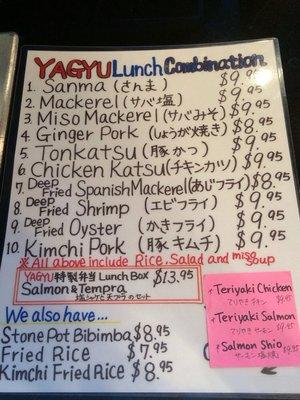 YAGYU Lunch Combination
1. Sanma (さんま) $9.95
2. Mackerel (サバ塩) $9.95
3. Miso Mackerel (サバみそ) $9.95
4. Ginger Pork (しょうが焼き) $8.95
5. Tonkatsu (豚かつ) $9.95
6. Chicken Katsu (チキンカツ) $9.95
7. Deep Fried Spanish Mackerel (あじフライ) $8.95
8. Deep Fried Shrimp (エビフライ) $9.95
9. Deep Fried Oyster (かきフライ) $9.95
10. Kimchi Pork (豚キムチ) $9.95
※All above include Rice, Salad and miso soup
YAGYU 特製弁当 Lunch Box $13.95
Salmon & Tempra
塩シャケと天プラのセット
We also have...
Stone Pot Bibimba $8.95
Fried Rice $7.95
Kimchi Fried Rice $8.95
Teriyaki Chicken
てりやきチキン $9.95
Teriyaki Salmon
てりやきサーモン $9.95
Salmon Shio
サーモン塩焼 $9.95